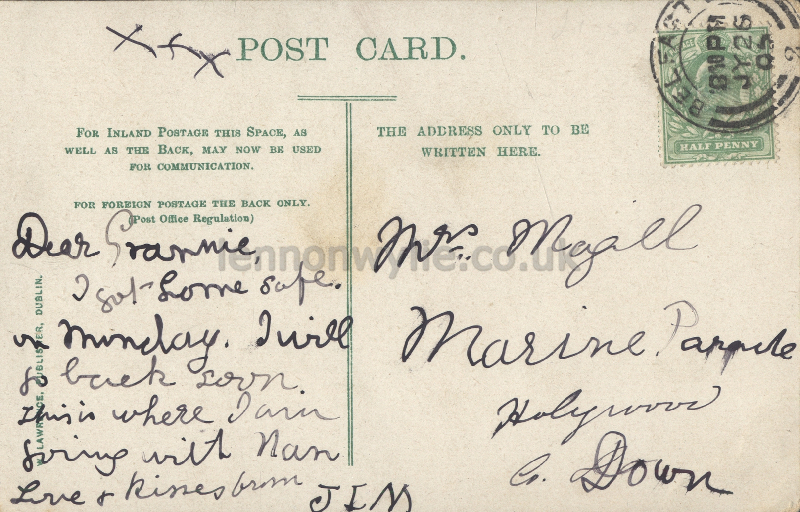 x x x
POST CARD.
FOR INLAND POSTAGE THIS SPACE, AS
WELL AS THE BACK, MAY NOW BE USED
FOR COMMUNICATION.
FOR FOREIGN POSTAGE THE BACK ONLY.
(Post Office Regulation)
Dear Grannie,
I got home safe.
on Munday. I will
go back soon
this is where I am
going with Nan
Love & kisses from
JIM
THE ADDRESS ONLY TO BE
WRITTEN HERE.
BELFAST
JY 25
05
HALF PENNY
Mrs. Magill
Marine Parade
Holywood
Co. Down
LAWRENCE, PUBLISHER, DUBLIN.
lennonwylie.co.uk